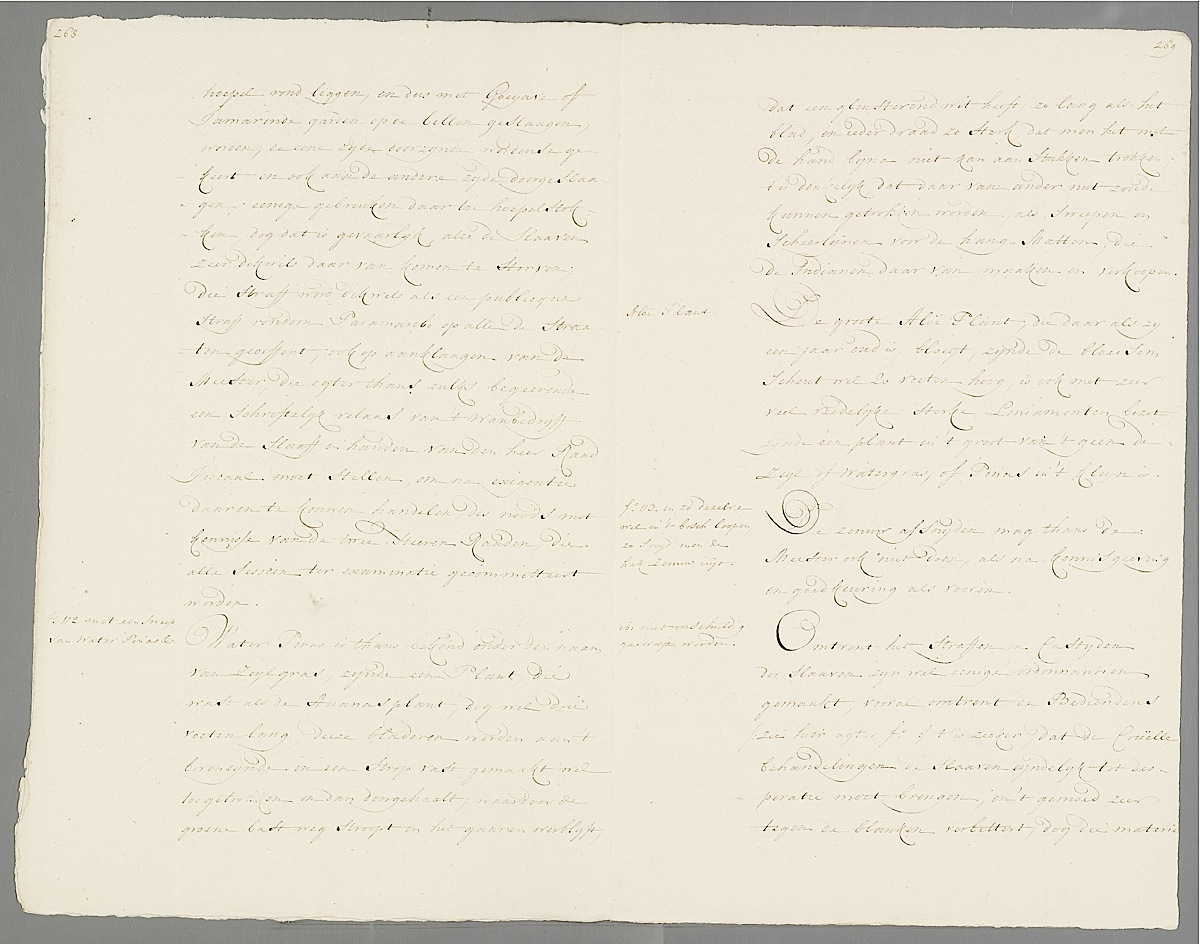 268
hoepel rond leggen, en dus met Goejave of
Tamarinde garden op de billen geslaagen
worden, de eene zyde eerzynde worden se ge-
keert en ook aan de andere zyde doorgeslaa-
gen; eenige gebruiken daar toe hoepel Stok-
ken, dog dat is gevaarlyk, also de Slaaven
zeer dikwils daar van komen te Sterven;
die Straff word dikwils als een publicque
Straff rondom Paramaribo op alle de Straa-
ten geoeffent, ook op aanklaagen van de
Meester, die egter thans zulks begeerende
een Schriftelyk relaas van 't wanbedryff
van de Slaaff in handen van den heer Raad
Fiscaal moet Stellen, om na exigentie
daar in te konnen handelen, des noods met
Kennisse van de twee Heeren Raaden, die
alle Sessien ter examinatie gecommitteert
worden.
f. 112 met een Streep
van Water Pinaas
Water Pinas is thans bekend onder den naam
van Zeylgras, zynde een Plant, die
wast als de Ananas plant, dog wel drie
voeten lang, deze bladeren worden aan 't
in een Strop vast gemaakt wel
toegetrokken en dan doorgehaalt, waardoor de
groene bast weg Stroopt en het gaaren overblyft,
269
dat een glinsterend wit heeft zo lang als het
blad, en ieder draad zo Sterk dat men het met
de hand byna niet kan aan Stukken trekken,
't is denkelyk dat daar van ander nut zoude
kunnen getrokken worden, als Streepen en
Scheerlynen voor de hang-Matten, die
de Indianen daar van maaken en verkoopen.
Aloë Plant
De groote Aloë Plant, die daar als zy
een jaar oud is bloeyt, zynde de bloessem
Scheut wel 20 voeten hoog, is ook met zeer
veel redelyke Sterke bezet
zynde een plant in 't groot van 't geen de
Zeyl of Watergras, of Pinas in 't kleyn is.
f. 113. en zo dezelve
wel in 't bosch loopen
zo Snyd men de
hak Zeenuw uyt.
De zenuw afsnyden mag thans de
Meester ook niet doen, als na Kennisgeeving
en goedkeuring als vooren.
met onschuldig
gestraft worden.
Omtrent het Straffen en Castyden
der Slaaven zyn wel eenige Ordonnantien
gemaakt, vooral omtrent de Bediendens
zie hier agter f. 't is zeeker, dat de Cruëlle
behandelingen de Slaaven eyndelyk tot des-
peratie moet brengen, en 't gemoed zeer
tegen de blanken verbittert, dog die materie